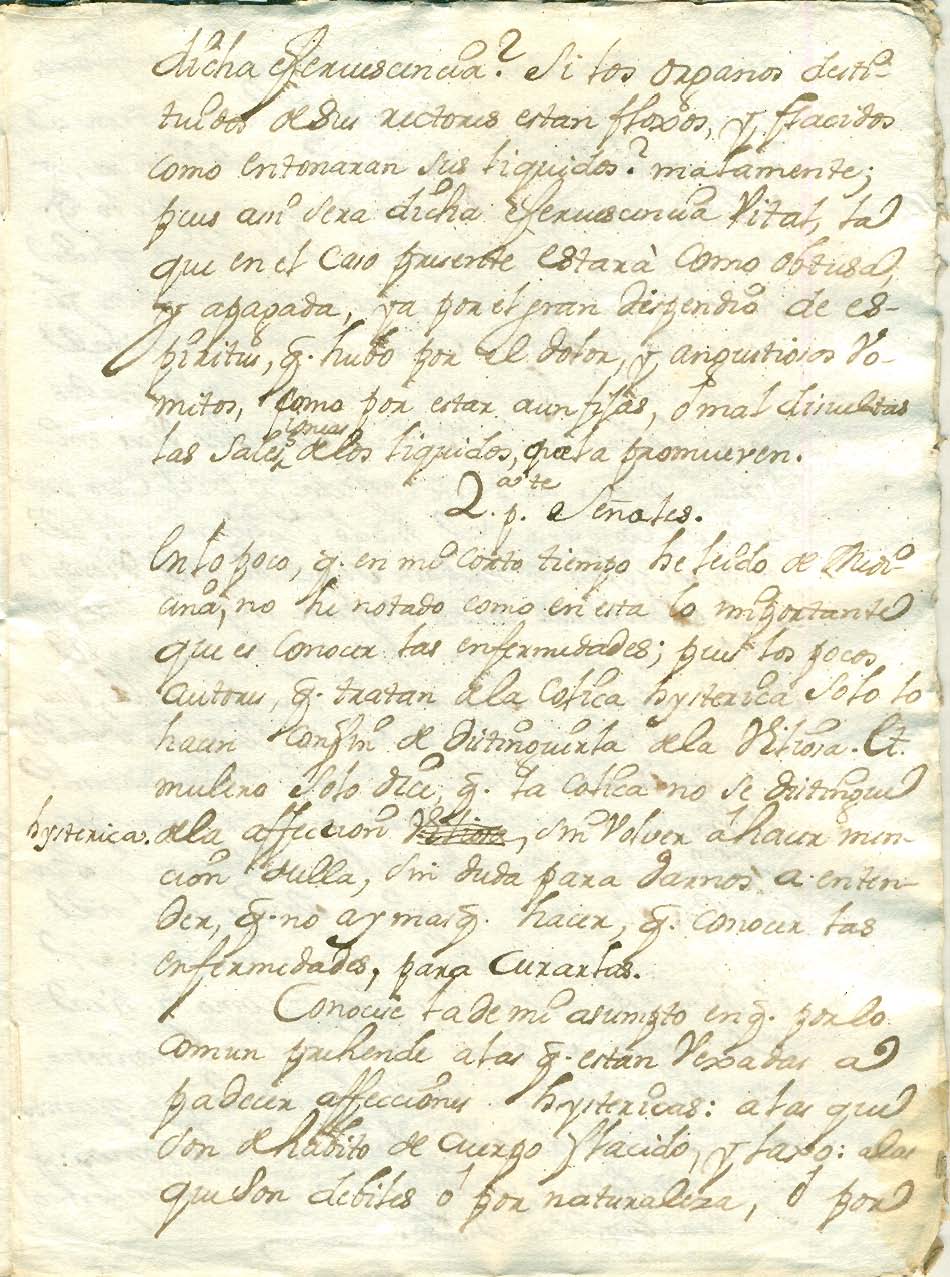 dicha efervescencia? Si los organos desti-
tuidos de sus rectores estan floxos, y flacidos
como entonaran sus liquidos? malamente;
pues assi sera dicha efervescencia Vital, la
que en el Caso presente estarà como obtusa,
y apagada, ya por el gran dispendio de es-
piritus, q. hubo por el dolor, y angustiosos Vo-
mitos, como por estar aun fixas, ó mal disueltas
las sales de los liquidos, que la promueven.
2.ª p.te Señales.
En lo poco, q. en mi corto tiempo he leido de Medi-
cina, no he notado como en esta lo importante
que es conocer las enfermedades; pues los pocos
autores, q. tratan de la Colica hysterica solo lo
hacen con el fin de distinguirla de la Viliosa. Et-
mulero solo dice, q. la colica no se distingue
hysterica. de la affeccion Viliosa, sin Volver á hacer men-
cion della, sin duda para darnos a enten-
der, q. no ay mas q. hacer, q. conocer las
enfermedades, para Curarlas.
Conocese la de mi asumpto en q. por lo
comun prehende a las q. estan Vexadas a
padecer affecciones hystericas: a las que
son de habito de cuerpo flacido, y laxo: a las
que son debiles ó por naturaleza, ó por